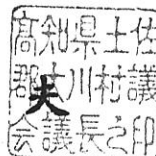 高知県土佐
郡大川村議
夫
会議長之印